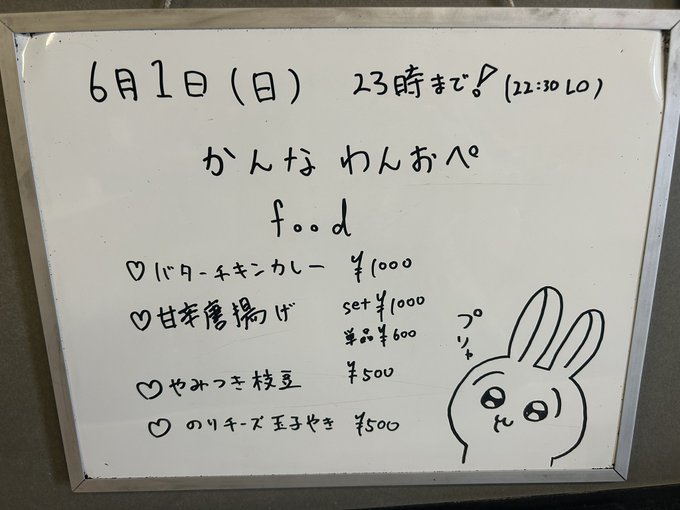 6月1日(日) 23時まで! (22:30 LO)
かんな わんおぺ
food
♡バターチキンカレー ¥1000
♡甘辛唐揚げ set¥1000
単品¥600
♡やみつき枝豆 ¥500
♡のりチーズ玉子やき ¥500
プリャ